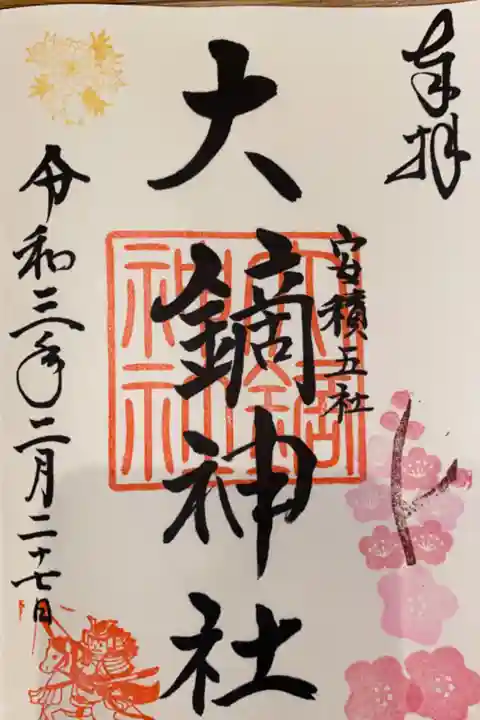 奉拝
安積五社
大鏑神社
大鏑神社
令和三年二月二十七日